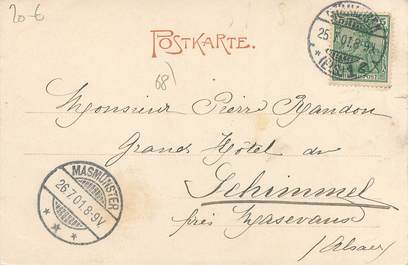 20 €
POSTKARTE.
68)
25.7.01.8-9V.
Monsieur Pierre Randon
Grand Hôtel du
Schimmel
près Masevaux
/Alsace
MASMÜNSTER
26.7.01.8-9V.